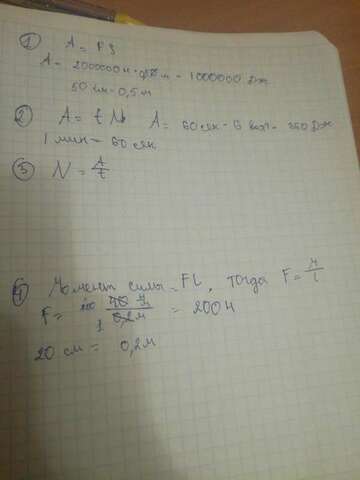 ① A = FS
A = 2000000 н · 0,5 м = 1000000 Дж
50 см = 0,5 м
② A = t N A = 60 сек · 6 ватт = 360 Дж
1 мин = 60 сек
③ N = A/t
④ Момент силы = FL, тогда F = M/L
F = 40/0,2м = 200 Н
20 см = 0,2м